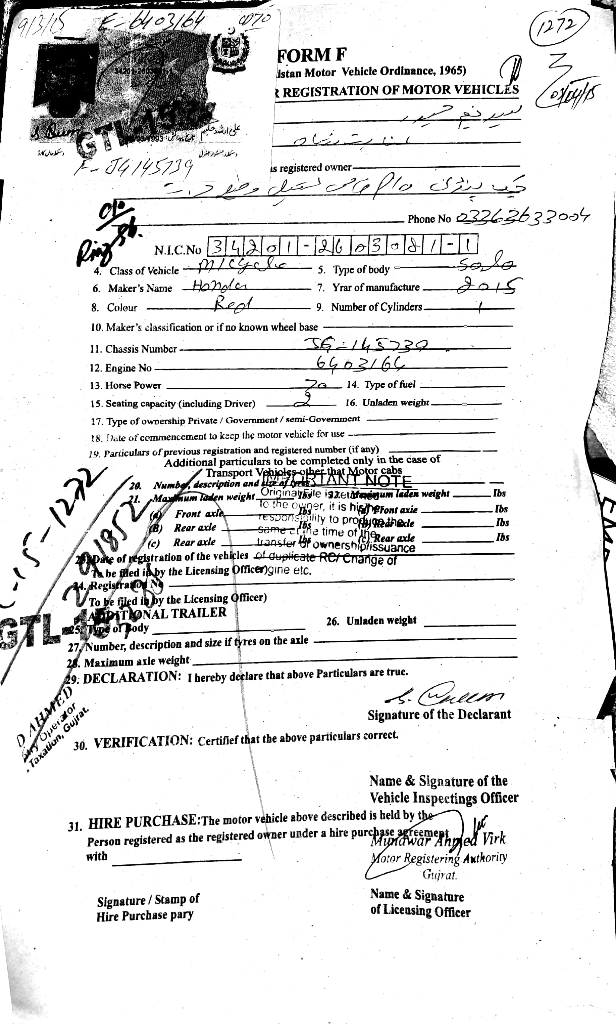 9/3/15 E-6403164 CD70
1272
FORM F
istan Motor Vehicle Ordinance, 1965)
R REGISTRATION OF MOTOR VEHICLES
01/04/15
GTL-15
F-JG145739
s registered owner
Phone No 03363633004
N.I.C.No 34201-2603081-1
4. Class of Vehicle M/Cycle 5. Type of body Solo
6. Maker's Name Honda 7. Yrar of manufacture 2015
8. Colour Red 9. Number of Cylinders 1
10. Maker's classification or if no known wheel base
11. Chassis Number JG-145739
12. Engine No 6403164
13. Horse Power 70 14. Type of fuel
15. Seating capacity (including Driver) 2 16. Unladen weight
17. Type of ownership Private / Government / semi-Government
18. Date of commencement to keep the motor vehicle for use
19. Particulars of previous registration and registered number (if any)
Additional particulars to be completed only in the case of
Transport Vehicles other that Motor cabs
20. Number, description and size of tyres
IMPORTANT NOTE
21. Maximum laden weight lbs 22. Maximum laden weight Lbs
Original file is returned
(a) Front axle lbs (a) Front axie Lbs
to the owner, it is his/her
(B) Rear axle lbs (B) Rear axle Lbs
responsibility to produce the
same at the time of the
(c) Rear axle lbs (c) Rear axle Lbs
transfer of ownership/issuance
23. Date of registration of the vehicles
of duplicate RC/ Change of
To be filed in by the Licensing Officer)
engine etc.
24. Registration No
To be filed in by the Licensing Officer)
ADDITIONAL TRAILER
25. Type of Body 26. Unladen weight
27. Number, description and size if tyres on the axle
28. Maximum axle weight
29. DECLARATION: I hereby declare that above Particulars are true.
GTL-15
D AHMED
Operator
Taxation, Gujrat.
Signature of the Declarant
30. VERIFICATION: Certifief that the above particulars correct.
Name & Signature of the
Vehicle Inspectings Officer
31. HIRE PURCHASE: The motor vehicle above described is held by the
Person registered as the registered owner under a hire purchase agreement
with
Munawar Ahmed Virk
Motor Registering Authority
Gujrat.
Signature / Stamp of
Hire Purchase pary
Name & Signature
of Licensing Officer